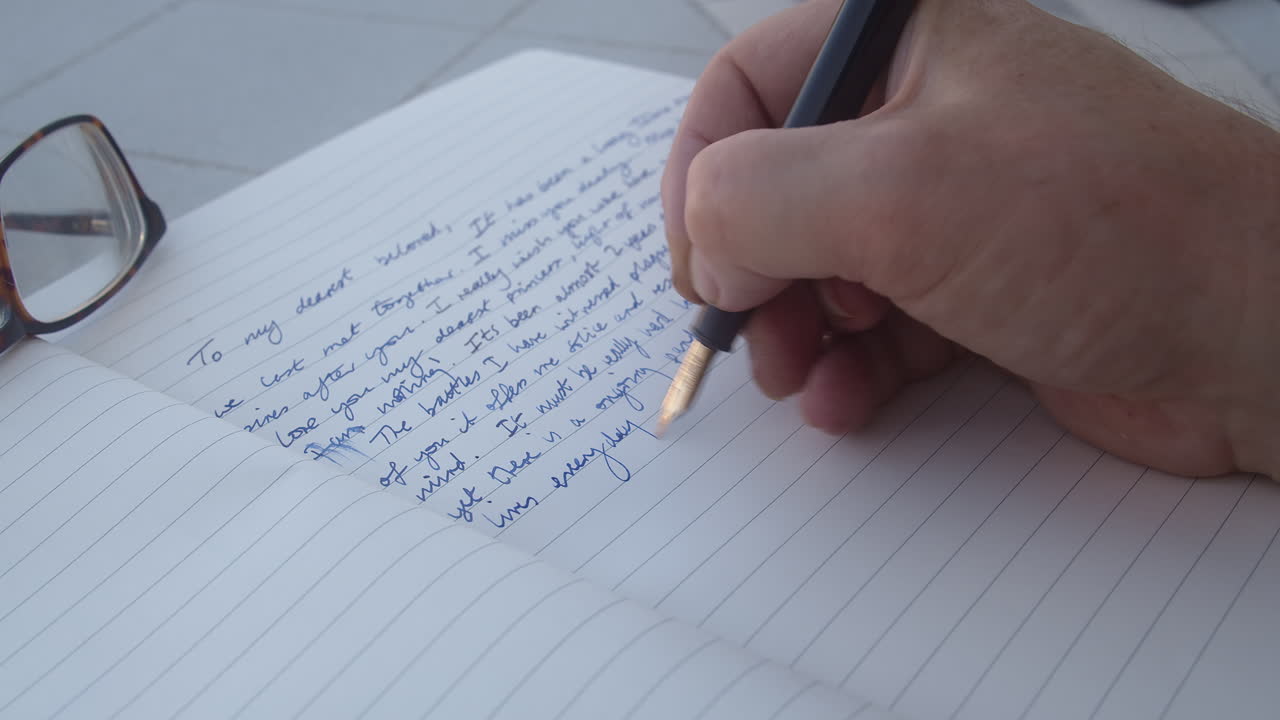 To my dearest beloved, It has been a long time
we last met together. I miss you dearly.
after you. I really wish you were
Love you my dearest princess, light of
nothing. Its been almost 2 years
The battles I have witnessed
of you it offers me slice and
mind. It must be really hard
yet there is a ongoing
lives everyday